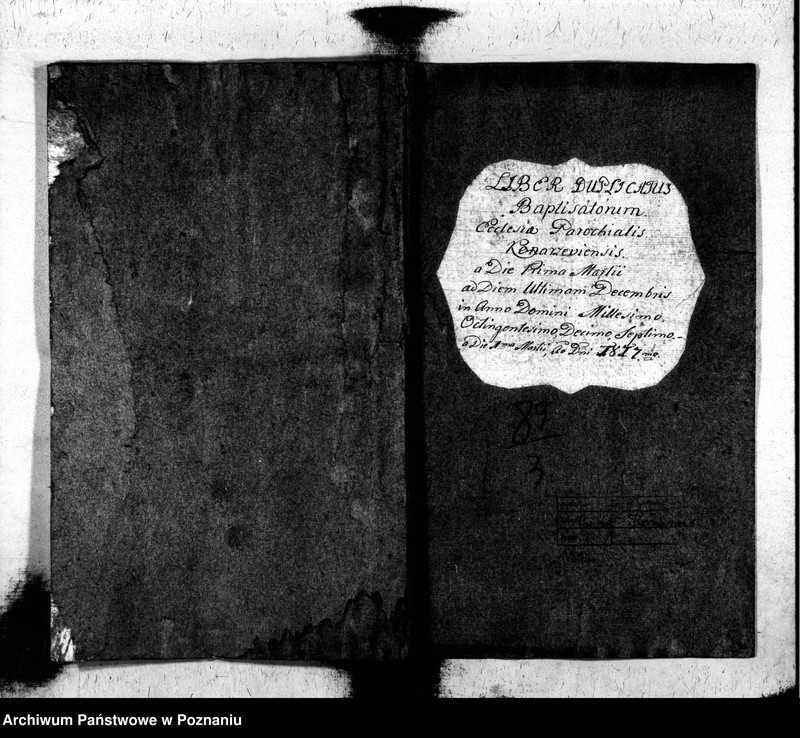 LIBER DUPLICATUS
Baptisatorum
Ecclesiæ Parochialis
Konarzeviensis.
a Die Prima Martii
ad Diem Ultimam Decembris
in Anno Domini Millesimo,
Octingentesimo, Decimo, Septimo.
a Die 1ma Martii, Ao Dni 1817mo.
89
3
Archiwum Państwowe w Poznaniu